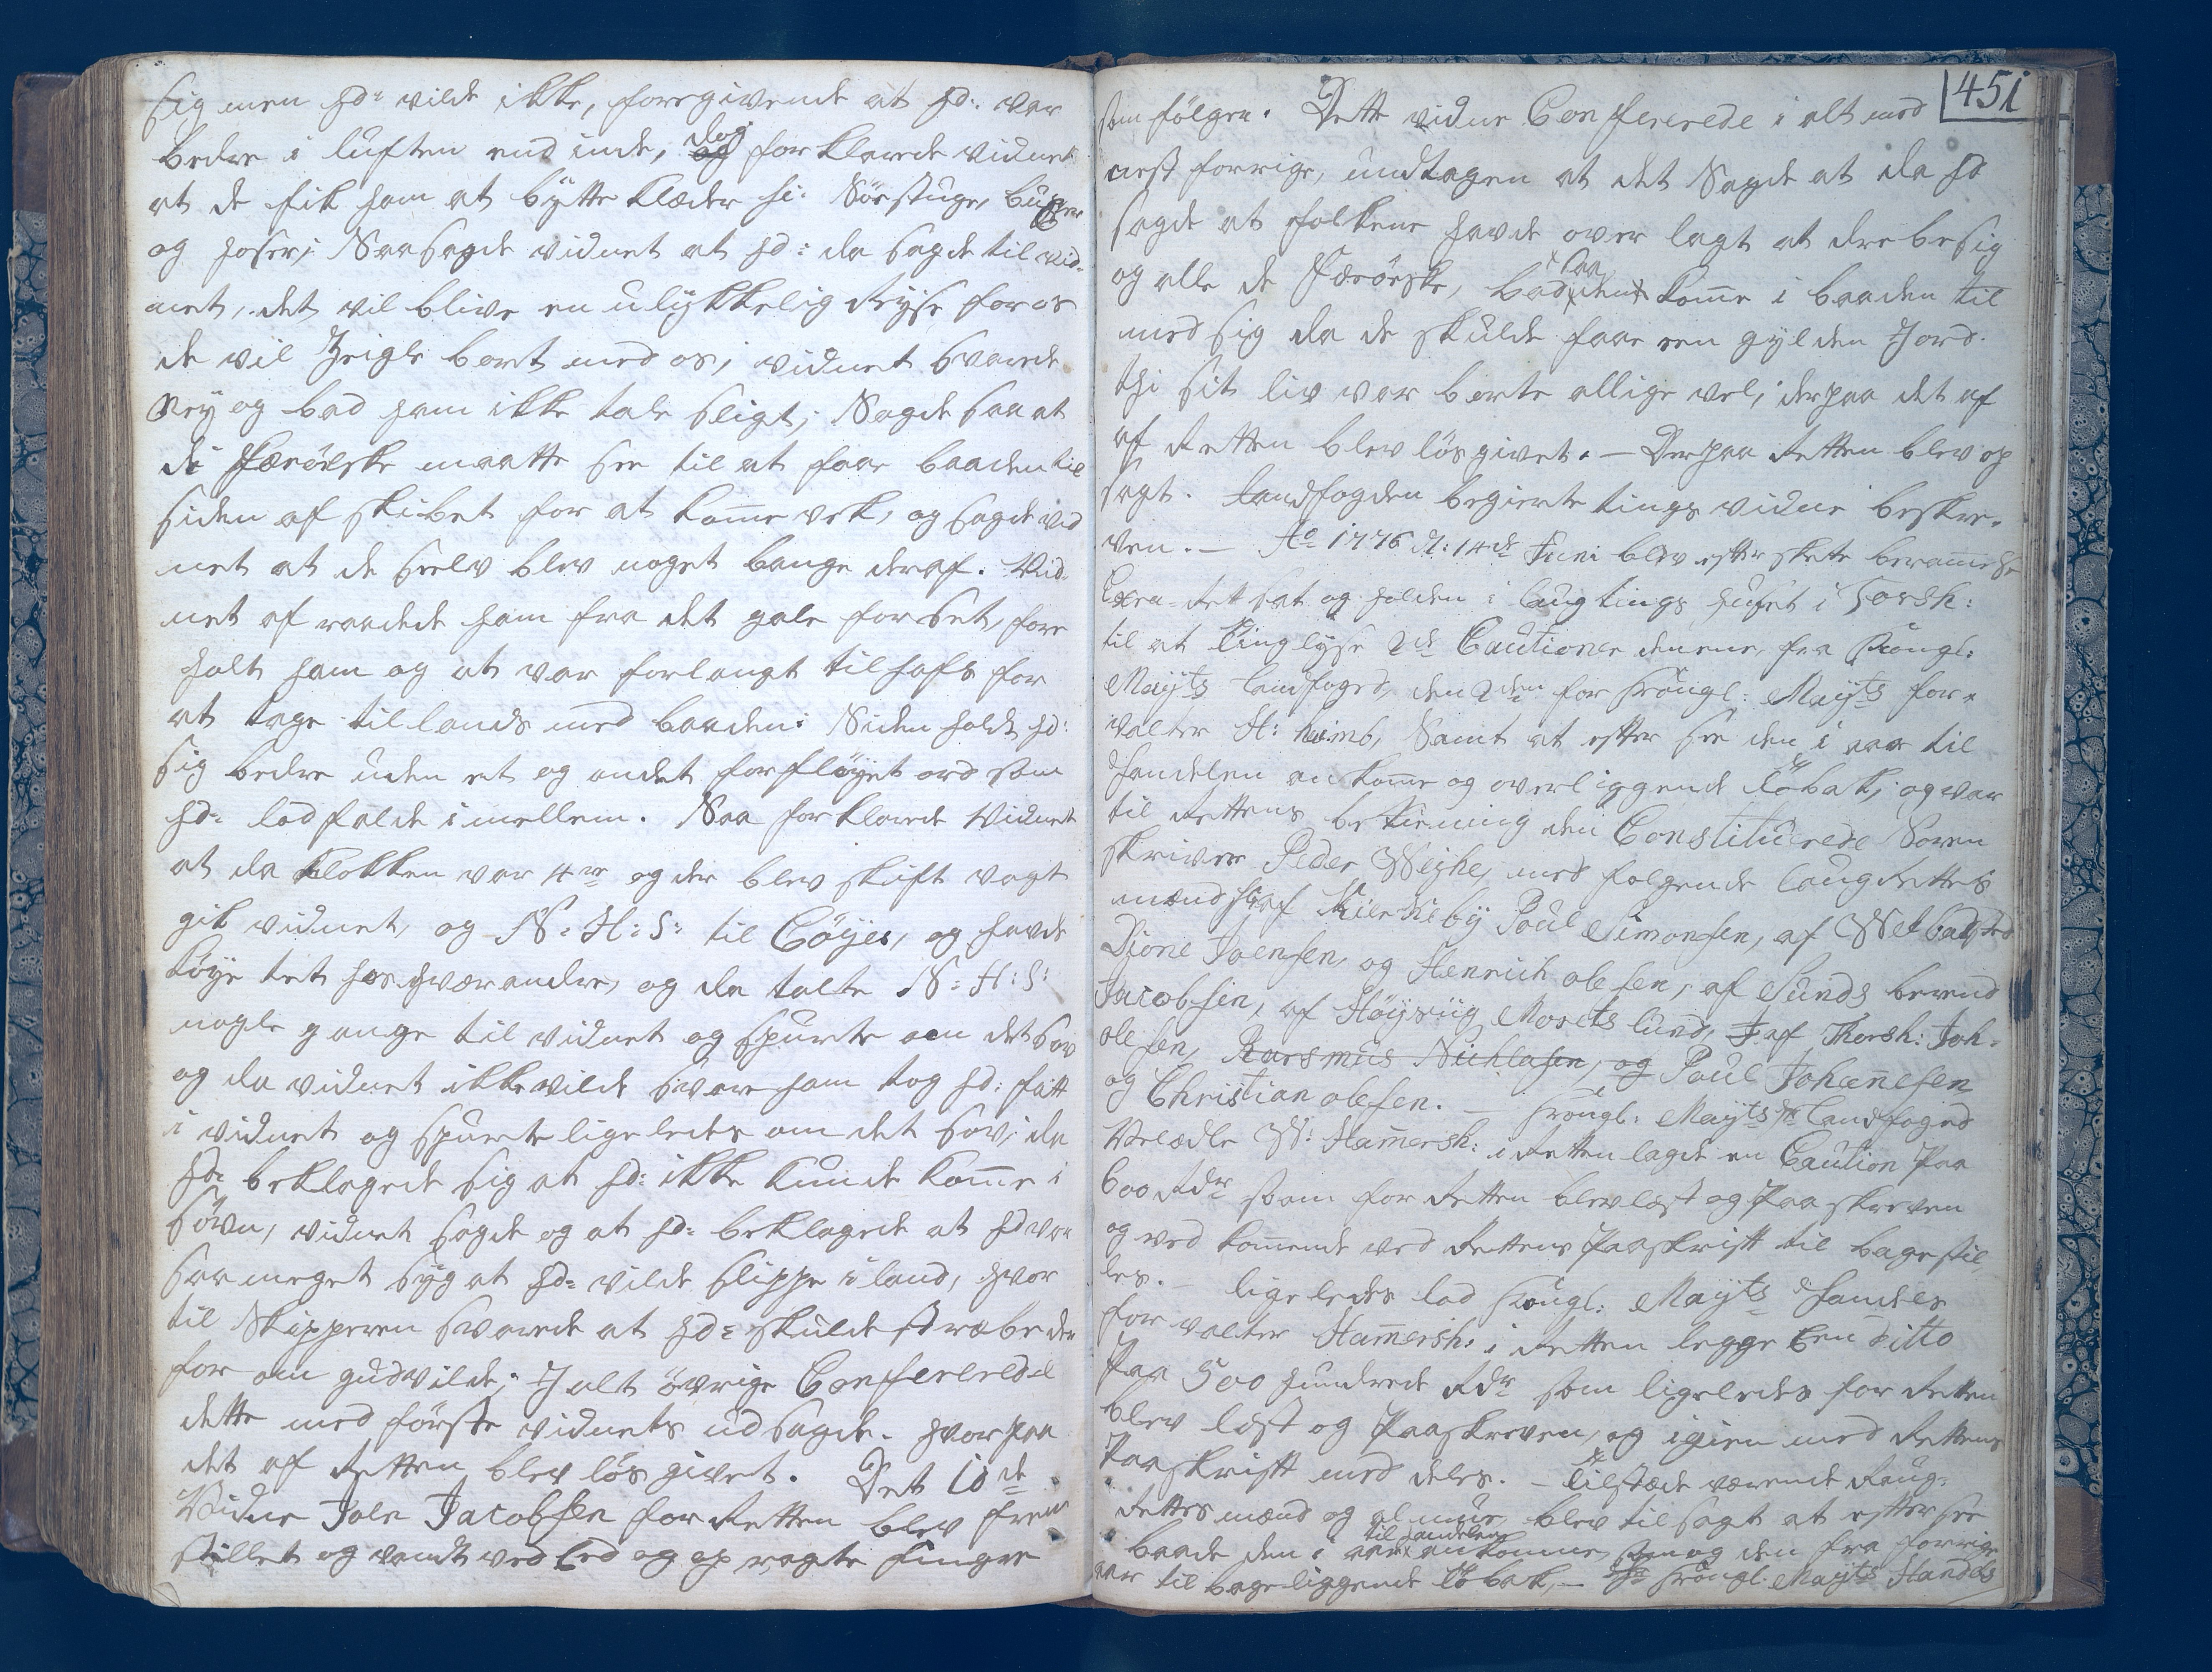 sig men hd: vilde ikke, foregivende at hd: var
bedre i luften end inde, dog forklarede vidnet
at de fik ham at bÿtte klæder si: Nörstuge, buxer
og hoser; Saa sagde vidnet at hd: da sagde til vid-
net, det vil blive en ulÿkkelig Reÿse for os
de vil Zeigle bort med os; vidnet svarede
Neÿ og bad ham ikke tale sligt; Sagde saa at
de Færöeske maatte see til at faae baaden til
siden af skibet for at komme vek, og sagde vid
net at de selv blev noget bange deraf. Vid-
net af raadede ham fra det gale forset, fore
holt ham og at var forlangt tilhafs for
at tage til lands med baaden: Siden holdt hd:
sig bedre uden et og andet forflöÿet ord som
hd: lod falde i mellem. Saa forklarede Vidnet
at da klokken var 4re og der blev skift vagt
gik vidnet, og N: H: S: til Cöÿes, og havde
köÿe tet hos hværandre, og da talte N: H: S:
nogle gange til vidnet og spurte om det sov
og da vidnet ikke vilde svare ham tog hd: fatt
i vidnet og spurte ligeledes om det sov; da
hd: beklagede sig at hd: ikke kunde komme i
sövn, vidnet sagde og at hd: beklagede at hd var
saa meget sÿg at hd: vilde slippe i land, hvor
til Skipperen svarede at hd: skulde stræbe der
for om gud vilde; J alt övrige Confererede
dette med förste vidnets udsagde. hvorpaa
det af Retten blev lös givet. Det 10de
Vidne Joen Jacobsen for Retten blev frem
stillet og vandt ved Eed og op ragte fingre
451
som fölger. Dette vidne Confererede i alt med
nest forrige, undtagen at det Sagde at da hd
sagde at folkene havde over lagt at drebe sig
og alle de Færöeske, bad Paa dem komme i baaden til
med sig da de skulde faae een gÿlden Jord.
thi sit liv var borte allige vel; derpaa det af
af Retten blev lös givet. — Derpaa Retten blev op
sagt. Landfogden begierte tings vidne beskre-
ven. — Ao 1776 d: 14de Juni blev efter skete berammelse
Extra-Rett sat og holden i laugtings huset i Torsh:
til at tinglÿse 2de Cautioner den ene, fra Kongl:
Maÿts Landfoged, den 2den for Kongl: Maÿts for-
valter H: Samt at efter see den i aar til
Handelen ankomne og overliggende Töbak; og var
til Rettens betiening den Constituerede Soren
skriver Peder Weÿhe, med folgende laugrettes
mænd af Kirckebÿ Poul Simonsen, af Welbasted
Djone Joensen, og Henrich olesen, af Sunds berend
Jacobsen, af Höÿviig Morits lund, af Thorsh: Joh-
olesen, Rasmus Nichlasen, og Poul Johannesen
og Christian olesen. — Kongl: Maÿts Landfoged
Velædle W: Hammersh: i Retten lagde en Caution Paa
600 Rdr som for Retten blev læst og Paa skreven
og ved kommende ved Rettens Paaskrift til bagestil
les. — ligeledes lod Kongl: Maÿts Handels
forvalter Hammersh: i Retten legge Een ditto
Paa 500 hundrede Rdr som ligeledes for Retten
blev læst og Paaskreven, og igien med Rettens
Paaskrift med deles. — Tilstæde værende Laug-
Rettes mænd og almue, blev tilsagt at efter see
baade den i aar til Handelen ankomne, og den fra forrige
aar til bage liggende töbak, — Kongl: Maÿts Handels